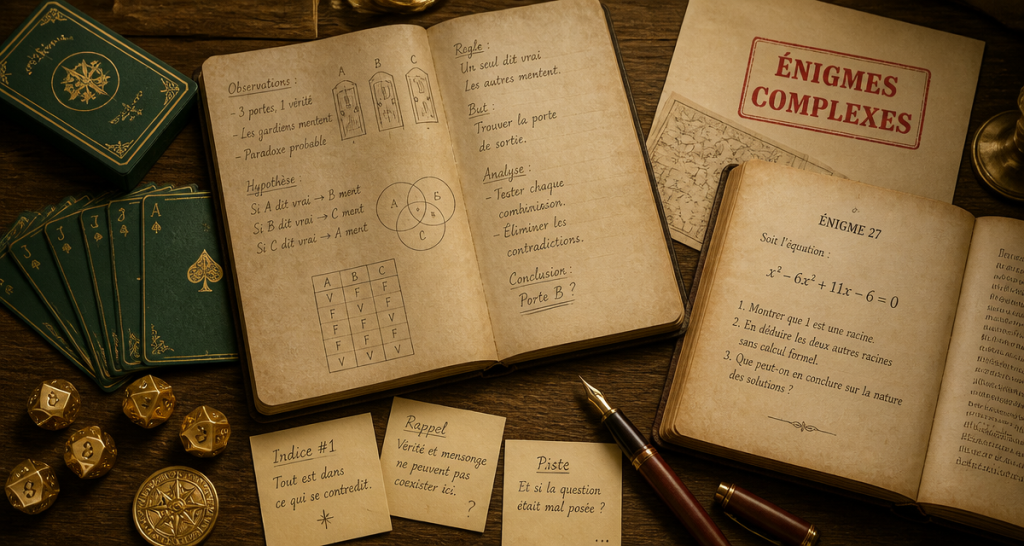 Observations :
- 3 portes, 1 vérité
- Les gardiens mentent
- Paradoxe probable
A B C
Hypothèse :
Si A dit vrai → B ment
Si B dit vrai → C ment
Si C dit vrai → A ment
A B
C
A B C
V F F
V V V
Rogle :
Un seul dit vrai
Les autres mentent.
But :
Trouver la porte
de sortie.
Analyse :
- Tester chaque
combinaison.
- Éliminer les
contradictions.
Conclusion :
Porte B ?
ÉNIGMES
COMPLEXES
ÉNIGME 27
Soit l'équation :
x² − 6x² + 11x − 6 = 0
1. Montrer que 1 est une racine.
2. En déduire les deux autres racines
sans calcul formel.
3. Que peut-on en conclure sur la nature
des solutions ?
A
Indice #1
Tout est dans
ce qui se contredit.
Rappel
Vérité et mensonge
ne peuvent pas
coexister ici.
?
P.iste
Et si la question
était mal posée ?
...